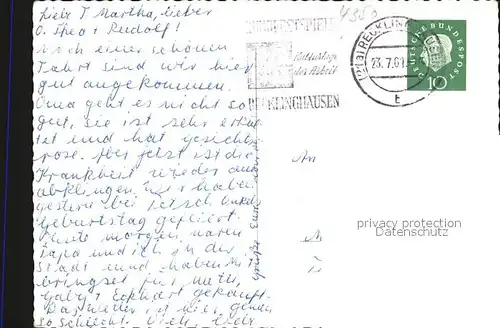 Liebe T. Martha, lieber
O. Theo + Rudolf!
Nach einer schönen
Fahrt sind wir hier
gut angekommen.
Oma geht es nicht so
gut, sie ist sehr
tet und hat Gesichts
rose. Aber jetzt ist die
Krankheit wieder am
abklingen. Wir haben
gestern bei Onkel
Geburtstag gefeiert.
Heute morgen waren
Papa und ich in der
Stadt und haben Mit
bringsel für Mutti,
Gaby + Eckhart gekauft.
Das Wetter ist hier genau
so schlecht. Viele liebe
Grüße Eure
RUHRFESTSPIELE
Kulturtage
der Arbeit
RECKLINGHAUSEN
(21a) RECKLINGHAUSEN
23.7.60
t
DEUTSCHE BUNDESPOST
10
An
privacy protection
Datenschutz